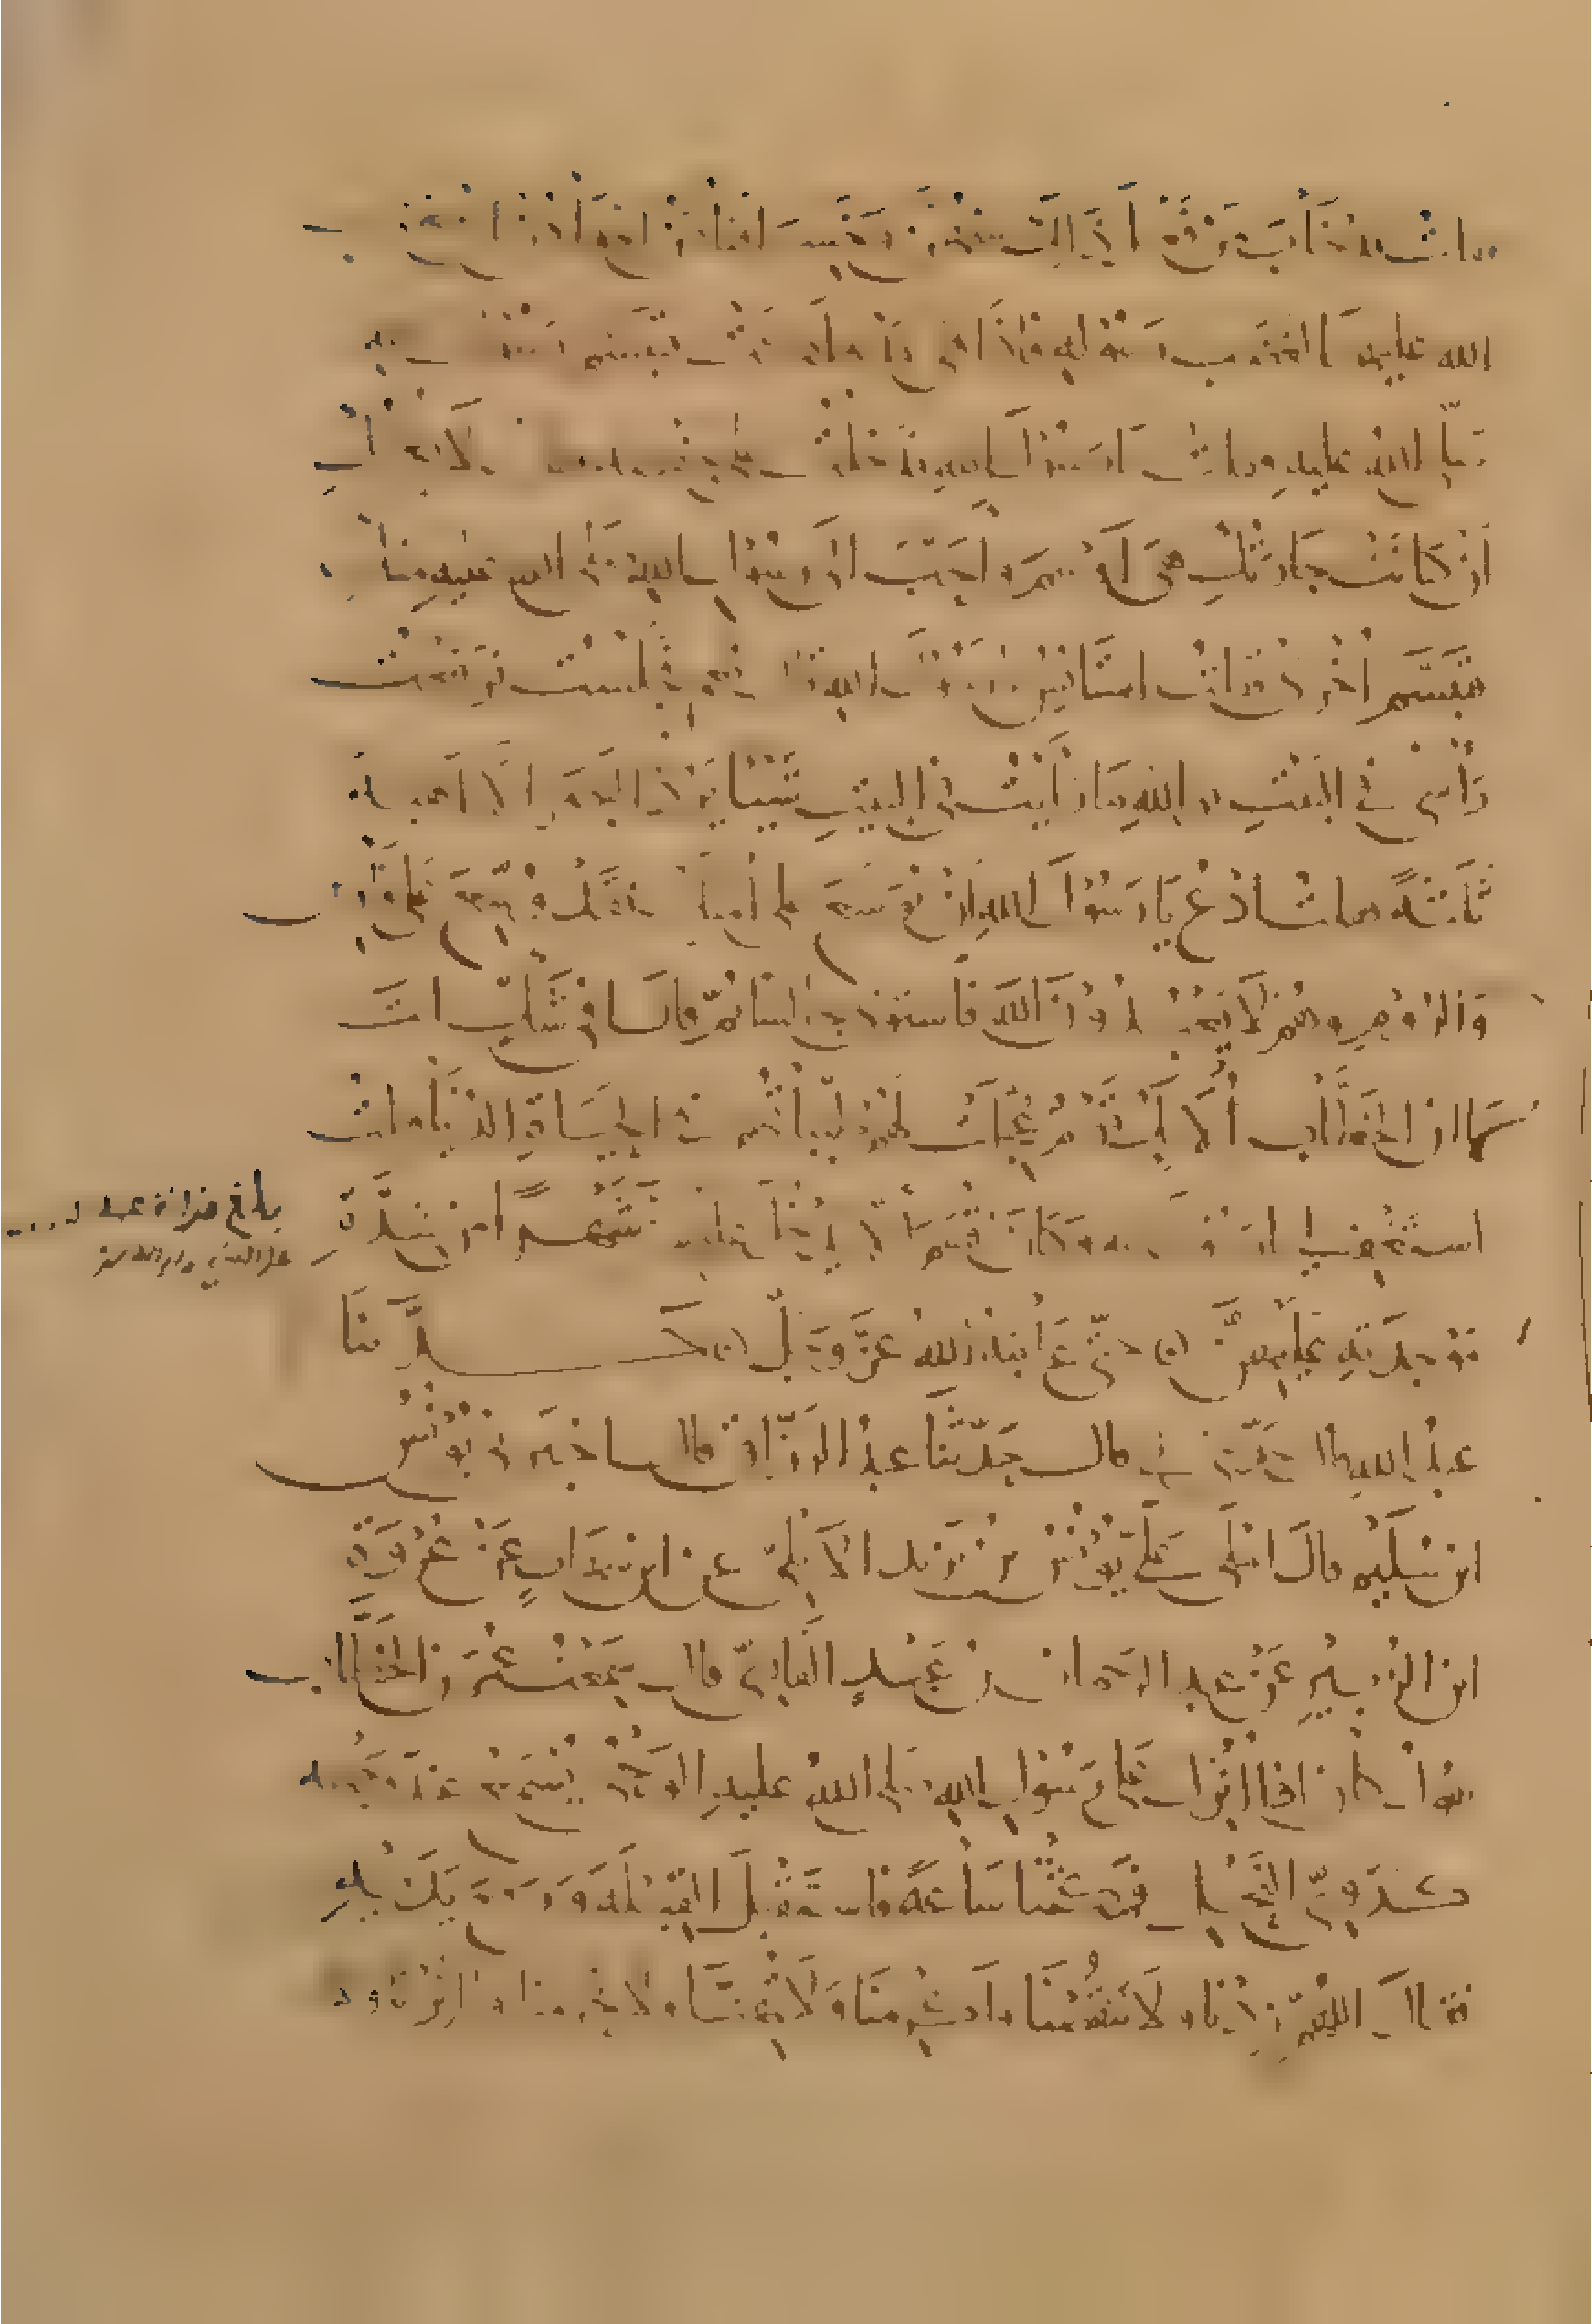 قد خاب من فعل ذلك منكن وخسر افتأمن احداكن ان يغضب
الله عليها لغضب رسوله فاذا هي قد هلكت فتبسم رسول الله
صلى الله عليه وسلم فقلت يا رسول الله فدخلت على حفصة فقلت لا يغرك
ان كانت جارتك هي اوسم واحب الى رسول الله صلى الله عليه وسلم منك
فتبسم اخرى فقلت استأنس يا رسول الله قال نعم فجلست فرفعت
رأسي في البيت فوالله ما رأيت في البيت شيئا يرد البصر الا اهبة
ثلاثة فقلت ادع يا رسول الله ان يوسع على امتك فقد وسع على فارس
والروم وهم لا يعبدون الله فاستوى جالسا ثم قال افي شك انت
يا ابن الخطاب اولئك قوم عجلت لهم طيباتهم في الحياة الدنيا فقلت
استغفر لي يا رسول الله وكان اقسم ان لا يدخل عليهن شهرا من شدة
موجدته عليهن حتى عاتبه الله عز وجل حدثنا
عبد الله قال حدثني ابي قال حدثنا عبد الرزاق قال اخبرني يونس
ابن سليم قال املى علي يونس بن يزيد الايلي عن ابن شهاب عن عروة
ابن الزبير عن عبد الرحمن بن عبد القاري قال سمعت عمر بن الخطاب
يقول كان اذا انزل على رسول الله صلى الله عليه الوحي يسمع عند وجهه
كدوي النحل فمكثنا ساعة فاستقبل القبلة ورفع يديه
فقال اللهم زدنا ولا تنقصنا واكرمنا ولا تهنا ولا تحرمنا واثرنا ولا
بلغ قراءة